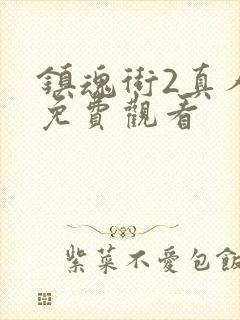 鎮魂街2真人
免費觀看
紫菜不愛包飯